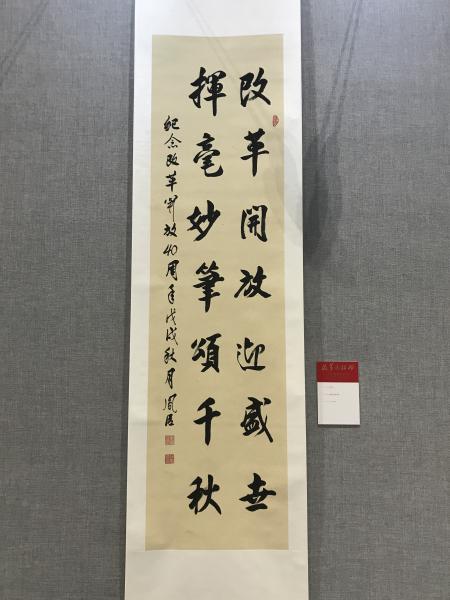 改革開放迎盛世
揮毫妙筆頌千秋
纪念改革开放40周年戊戌秋月鳳臣